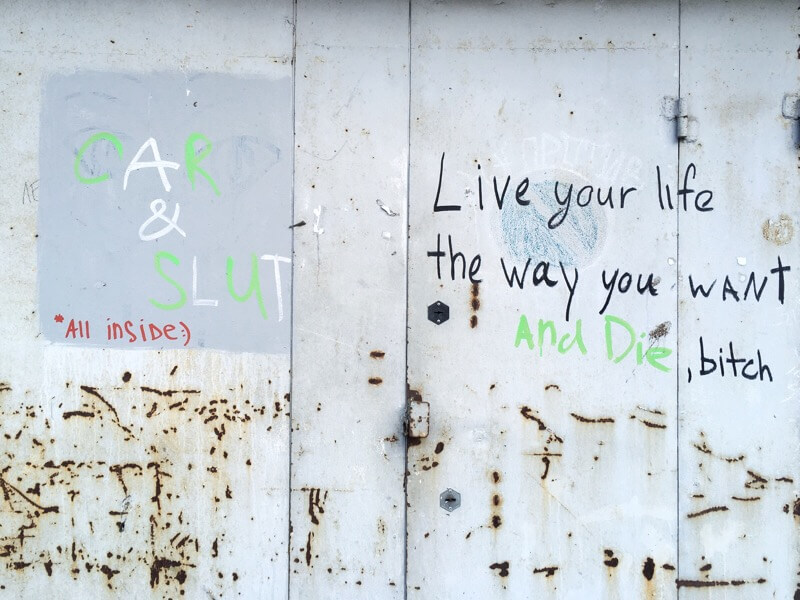 CAR
&
SLUT
*All inside:)
Live your life
the way you want
And Die, bitch